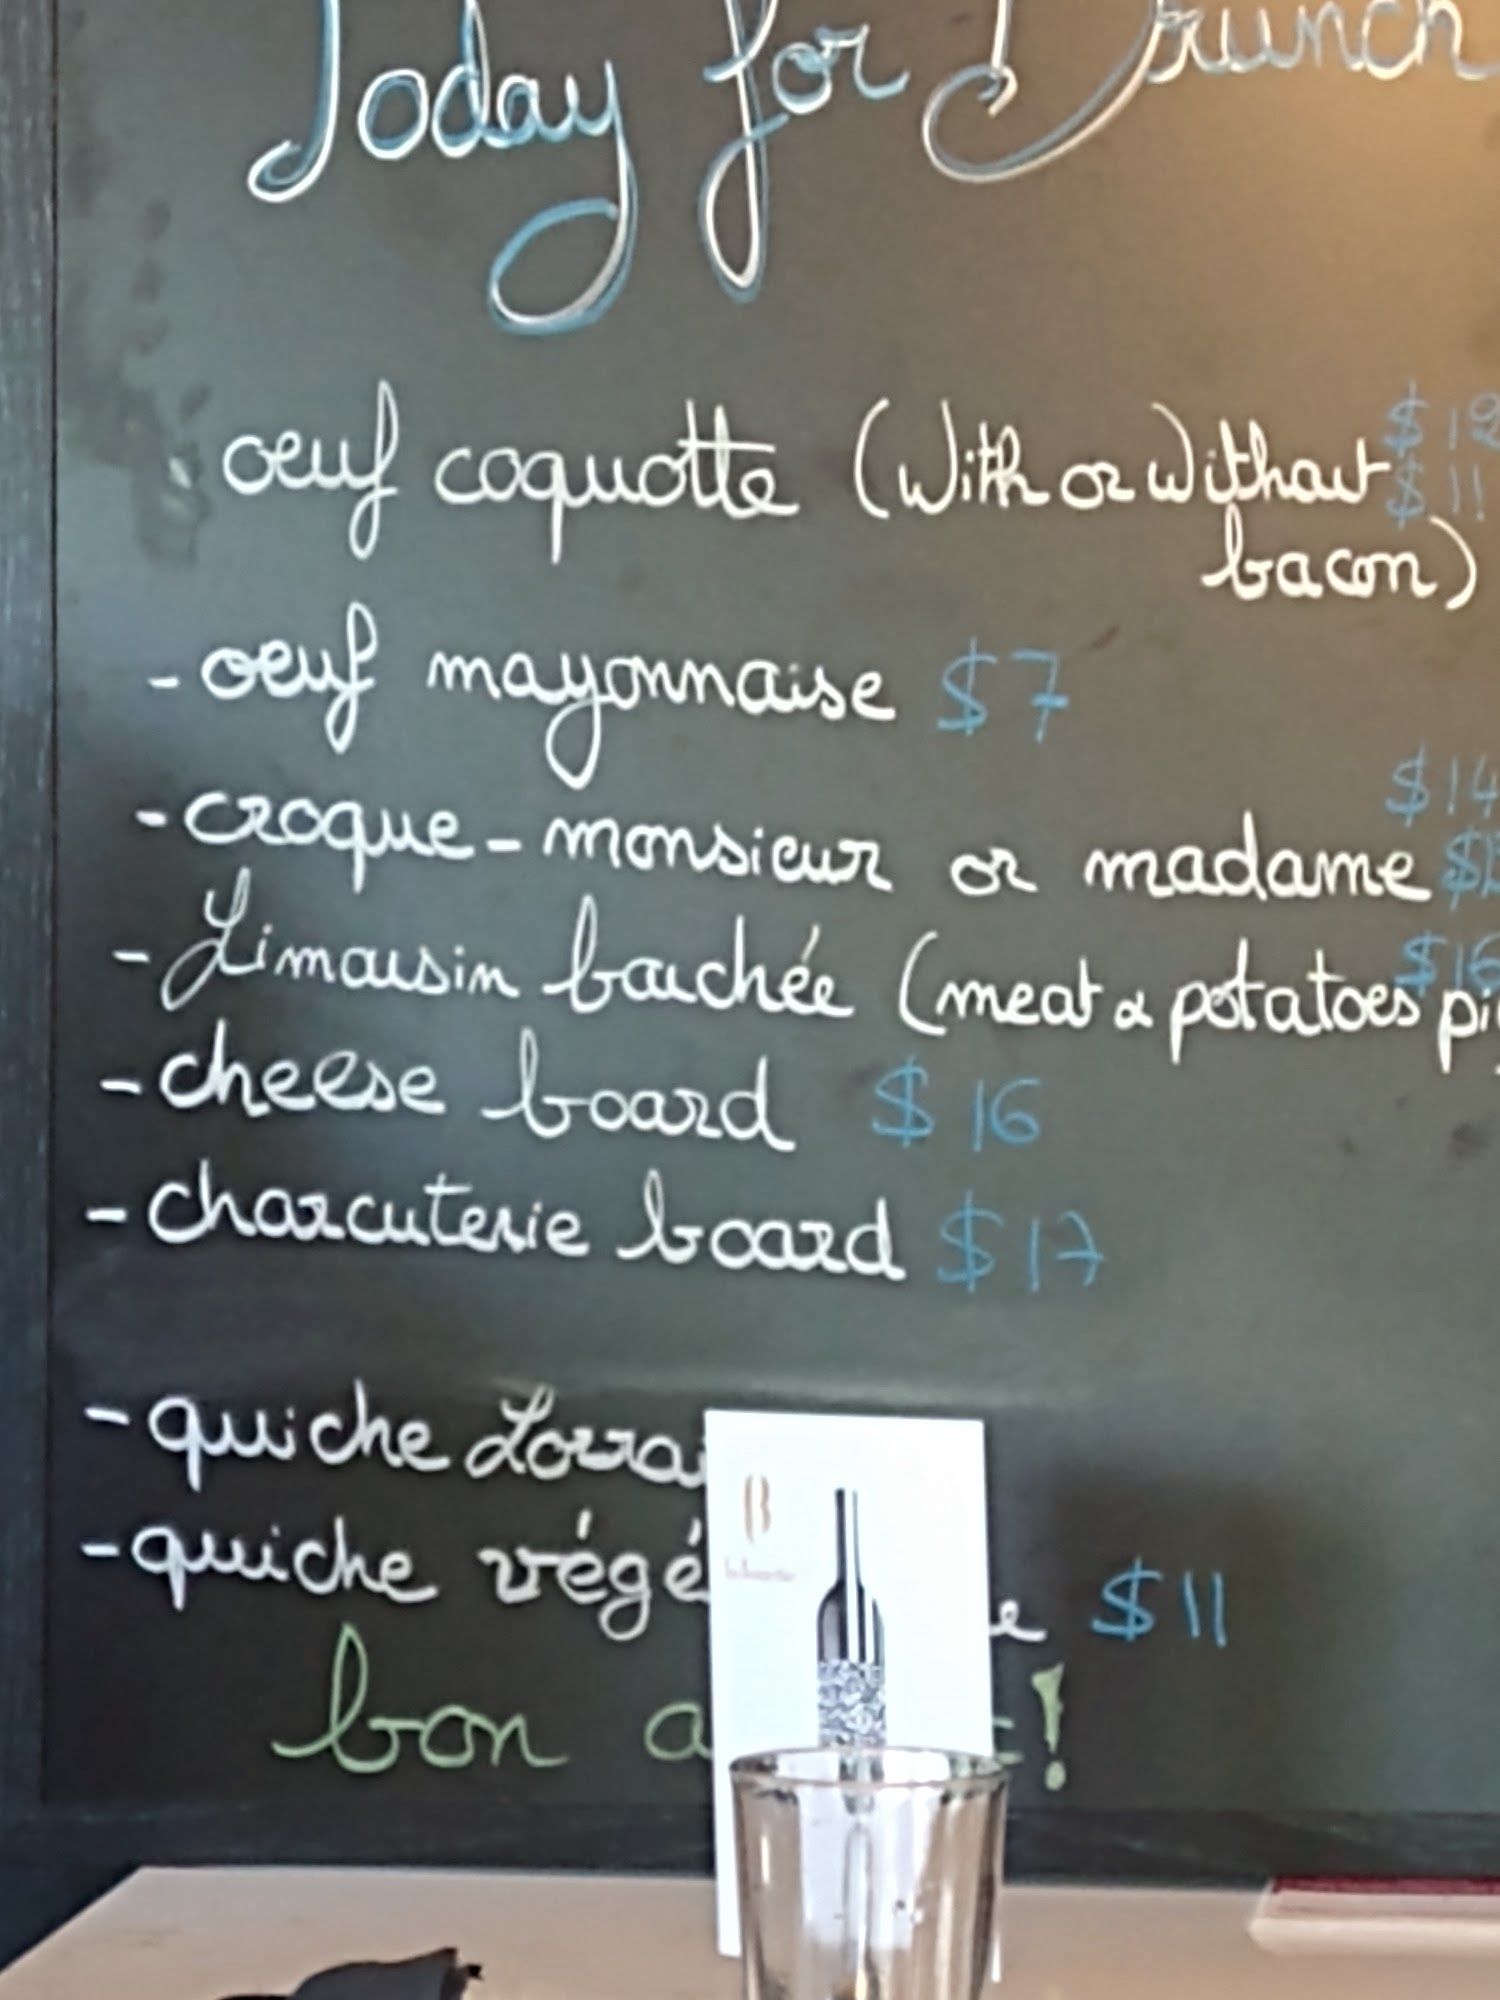 Today for Brunch
oeuf coquotte (With or Without
$11
bacon)
- oeuf mayonnaise $7
$14
- croque-monsieur or madame
- Limousin bouchée (meat & potatoes
$16
- cheese board $16
- charcuterie board $17
- quiche
- quiche $11
bon !